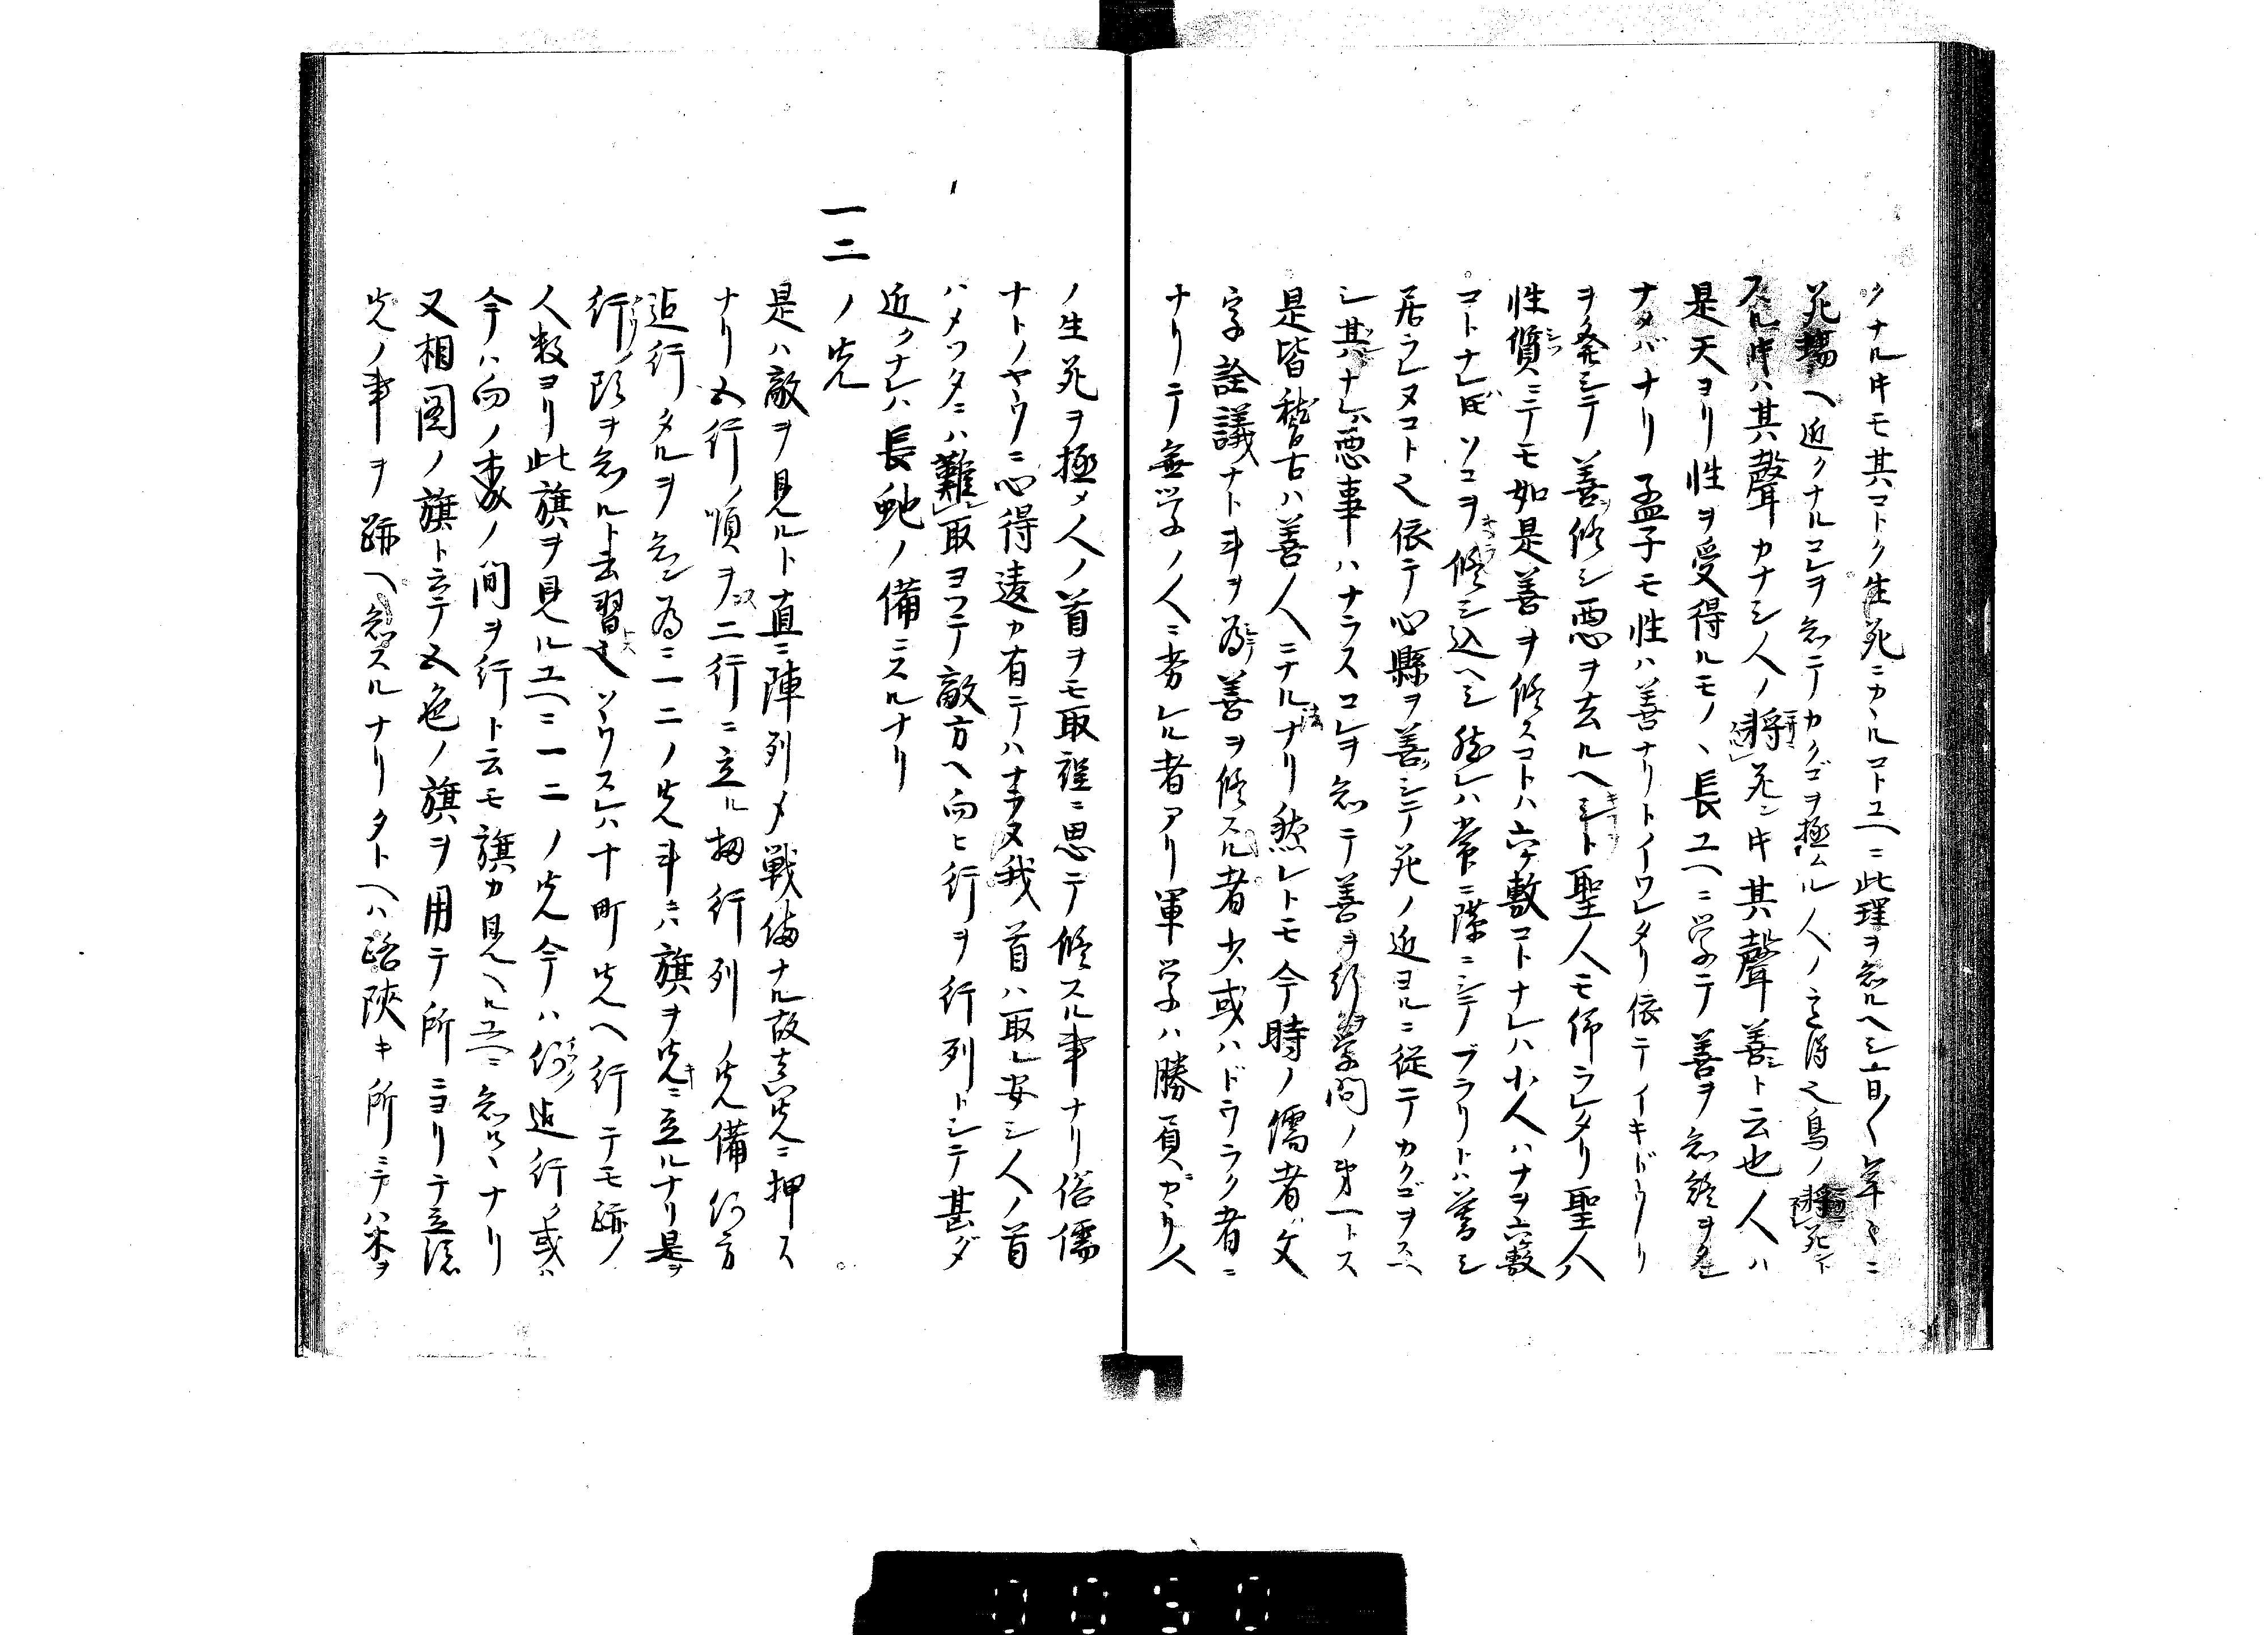 クナル𪜈モ其コトク生死ニカヽルコトユヘニ此理ヲ知ルヘシ百〱年〻ニ
死場ヘ近クナルコレヲ知テカクゴヲ極ムル人ノ心得也鳥ノ将死ント
スル𪜈ハ其聲カナシ人ノ将死ン𪜈其聲善ト云也人ハ
是天ヨリ性ヲ受得ルモノヽ長ユヘニ学テ善ヲ知
ナタバナリ孟子モ性ハ善ナリトイワレタリ依テイキドウリ
ヲ発シテ善ヲ修シ悪ヲ去ルヘシト聖人モ仰ラレタリ聖人ノ
性質ニテモ如是善ヲ修スコトハ六ケ敷コトナレハ小人ハナヲ六ケ敷
コトナレ𪜈ソコヲ修シ込ヘシ然レハ常ニ ニシテブラリトハ暮シ
居ラレヌコト也依テ心縣ヲ善ニシテ死ノ近ヨルニ従テカクゴヲスヘ
シ其ナレハ悪事ハナラスコレヲ知テ善ヲ行ヲ学問ノ第一トス
是皆稽古ハ善人ニナル法ナリ然レトモ今時ノ儒者ハ文
字詮議ナト斗ヲ為テ善ヲ修スル者少或ハドウラク者ニ
ナリテ無学ノ人ニ劣レル者アリ軍学ハ勝負ガカリ人
ノ生死ヲ極メ人ノ首ヲモ取程ニ思テ修スル事ナリ俗儒
ナトノヤウニ心得違カ有テハナラヌ我首ハ取レ安シ人ノ首
ハメツタニハ難取ヨツテ敵方ヘ向ヒ行ヲ行列トシテ甚ダ
近クナレハ長蛇ノ備ニスルナリ
一二ノ先
是ハ敵ヲ見ルト直ニ陣列メ戦備ナル故真先ニ押ス
ナリ五行ノ順ヲ二行ニ立ル扨行列ノ先備何方
迄行タルヲ知ン為ニ一二ノ先斗ハ旗ヲ先ニ立ルナリ是ヲ
行ノ頭ヲ知ルト云習也ソウスレハ十町先ヘ行テモ跡ノ
人数ヨリ此旗ヲ見ルユヘニ一二ノ先今ハ何迄行ク或ハ
今ハ向ノ森ノ間ヲ行ト云モ旗カ見ヘルユヘニ知ルヽナリ
又相圖ノ旗ト云テ五色ノ旗ヲ用テ所ニヨリテ立
先ノ事ヲ跡ヘ知スルナリタトヘハ路狭キ所ニテハ木ヲ